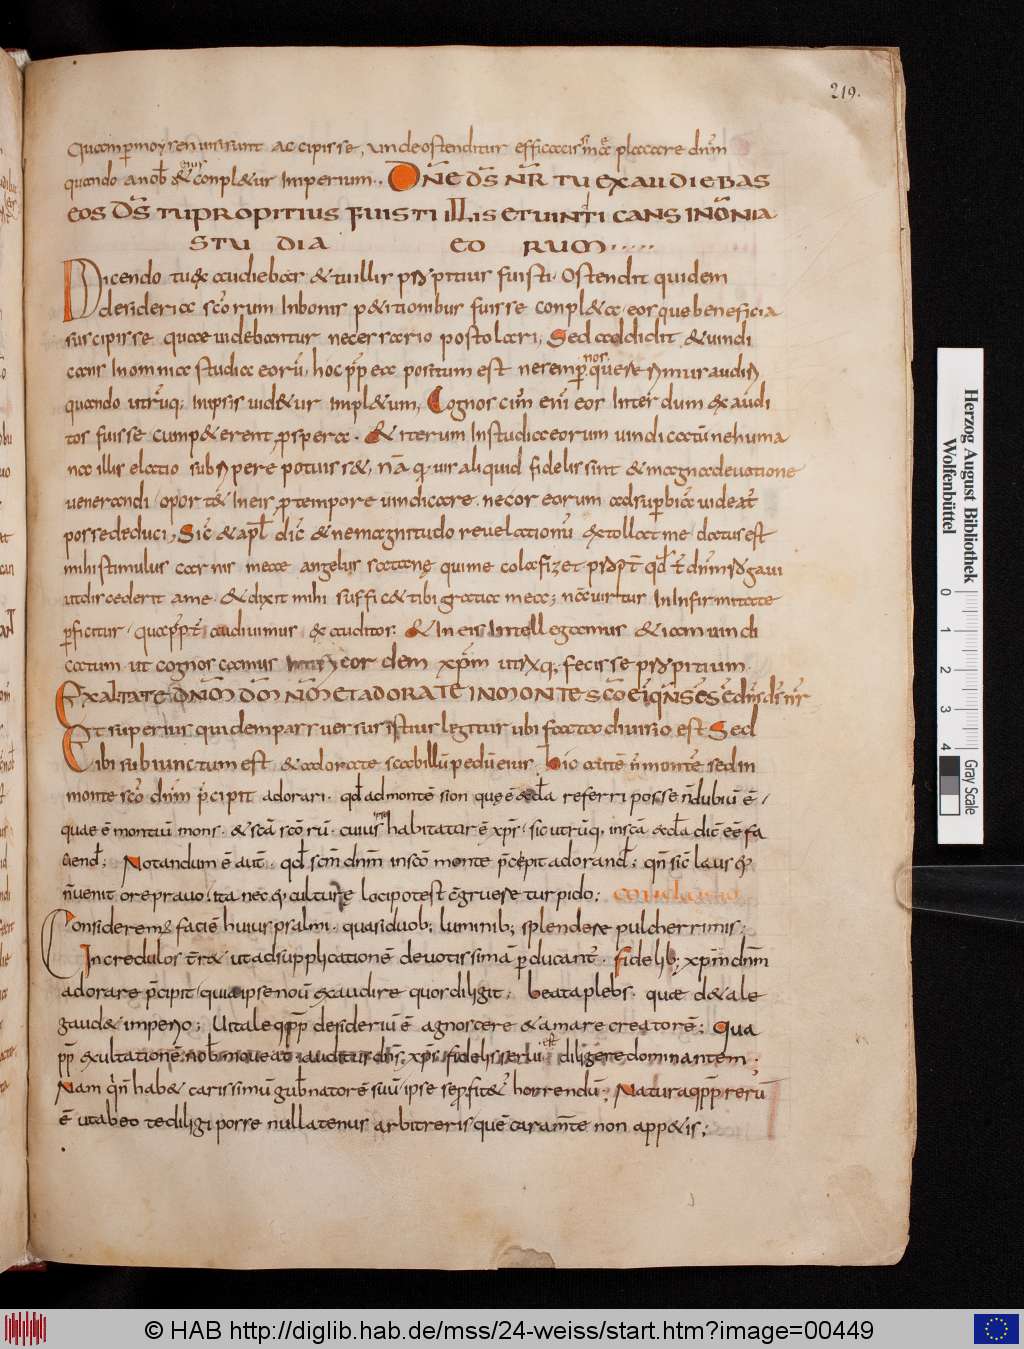 219.
quam per moysen uisi sunt accipisse, unde ostenditur efficacissimā placare dnm̄
quando a nob̄ & conpl&ur Imperium., DNĒ DS̄ NR̄ TU EXAUDIEBAS
EOS DS̄ TU PROPITIUS FUISTI ILLIS ET UINDICANS IN OM̄NIA
STUDIA EORUM.....
Dicendo tu exaudiebas & tu illis propitius fuisti. Ostendit quidem
desideria scōrum In bonis p&itionibus fuisse conpl&a. eosque beneficia
suscipisse quae uidebantur necessario postolari, Sed addidit & uindi
cans In omnia studia eorū, hoc
quando utrūq; In ipsis uid&ur Impl&um, Cognoscim̄ eni eos Interdum exaudi
tos fuisse cum p&erent prospera. & iterum In studia eorum uindicatū ne huma
na illis elatio subripere potuiss&, nā qui uis aliquid fidelis sint & magna deuotione
uenerandi, oport& In eis pro tempore uindicare. ne cor eorum ad supbiā uideat̄
posse deduci, Sic & apl̄ dic̄ & ne magnitudo reuelationū extollat me datus est
mihi stimulus carnis meae angelus satane qui me colafizet. propt̄ qd̄ t̄ dnm̄ rogaui
ut discederit a me. & dixit mihi sufficit tibi gratia mea; nā uirtus In Infirmitate
pficitur. audiuimus exauditos. & In eis Intellegamus & iam uindi
catum ut cognoscamus cordem xp̄m utrāq; fecisse propitium.
EXALTATE DNM̄ DM̄ NM̄ ET ADORATE IN MONTE SCŌ EI QN̄ SCS̄ E dn̄s ds̄ nr̄
Et superius quidem pars uersus istius legitur ubi facta diuisio est Sed
ibi subiunctum est & adorate scabillū pedū eius. hic autē In monte sed in
monte scō dnm̄ p̄cipit adorari. qd̄ ad montē sion que ē &cl̄a referri posse n̄ dubiū ē,
quae ē montiū mons. & scā scōrū. cuius habitator ē xp̄s. sic utrūq, in scā &cl̄a dic̄ eē fa
ciend̄. Notandum ē aut̄. qd̄ scm̄ dnm̄ in scō monte p̄cepit adorand̄. qn̄ sic̄ laus ei
n̄ uenit ore prauo. ita nec ei culture loci potest cgruere turpido; conclusio
Consideremus faciē huius psalmi. quasi duob; luminib; splendere pulcherrimis;
Incredulos t̄r& ut ad supplicationē deuotissimā pducant̄. Fidelib; xp̄m dnm̄
adorare p̄cipit. quia ipse nouit exaudire quos diligit; beata plebs. quae d& ale
gaud& imperio; Uitale qppp desideriū ē agnoscere & amare creatorē; Qua
ppp exultationē nob̄ moueat. auditur dn̄s; xp̄s. fidelis seruus diligere dominantem;
Nam qn̄ hab& carissimū gub̄natorē suū. ipse se pfit&ur horrendū; Natura qppp rerū
ē ut ab eo te diligi posse nullatenus arbitreris quē caram̄te non app&is;
Herzog August Bibliothek
Wolfenbüttel
0 1 2 3 4
Gray Scale
© HAB http://diglib.hab.de/mss/24-weiss/start.htm?image=00449